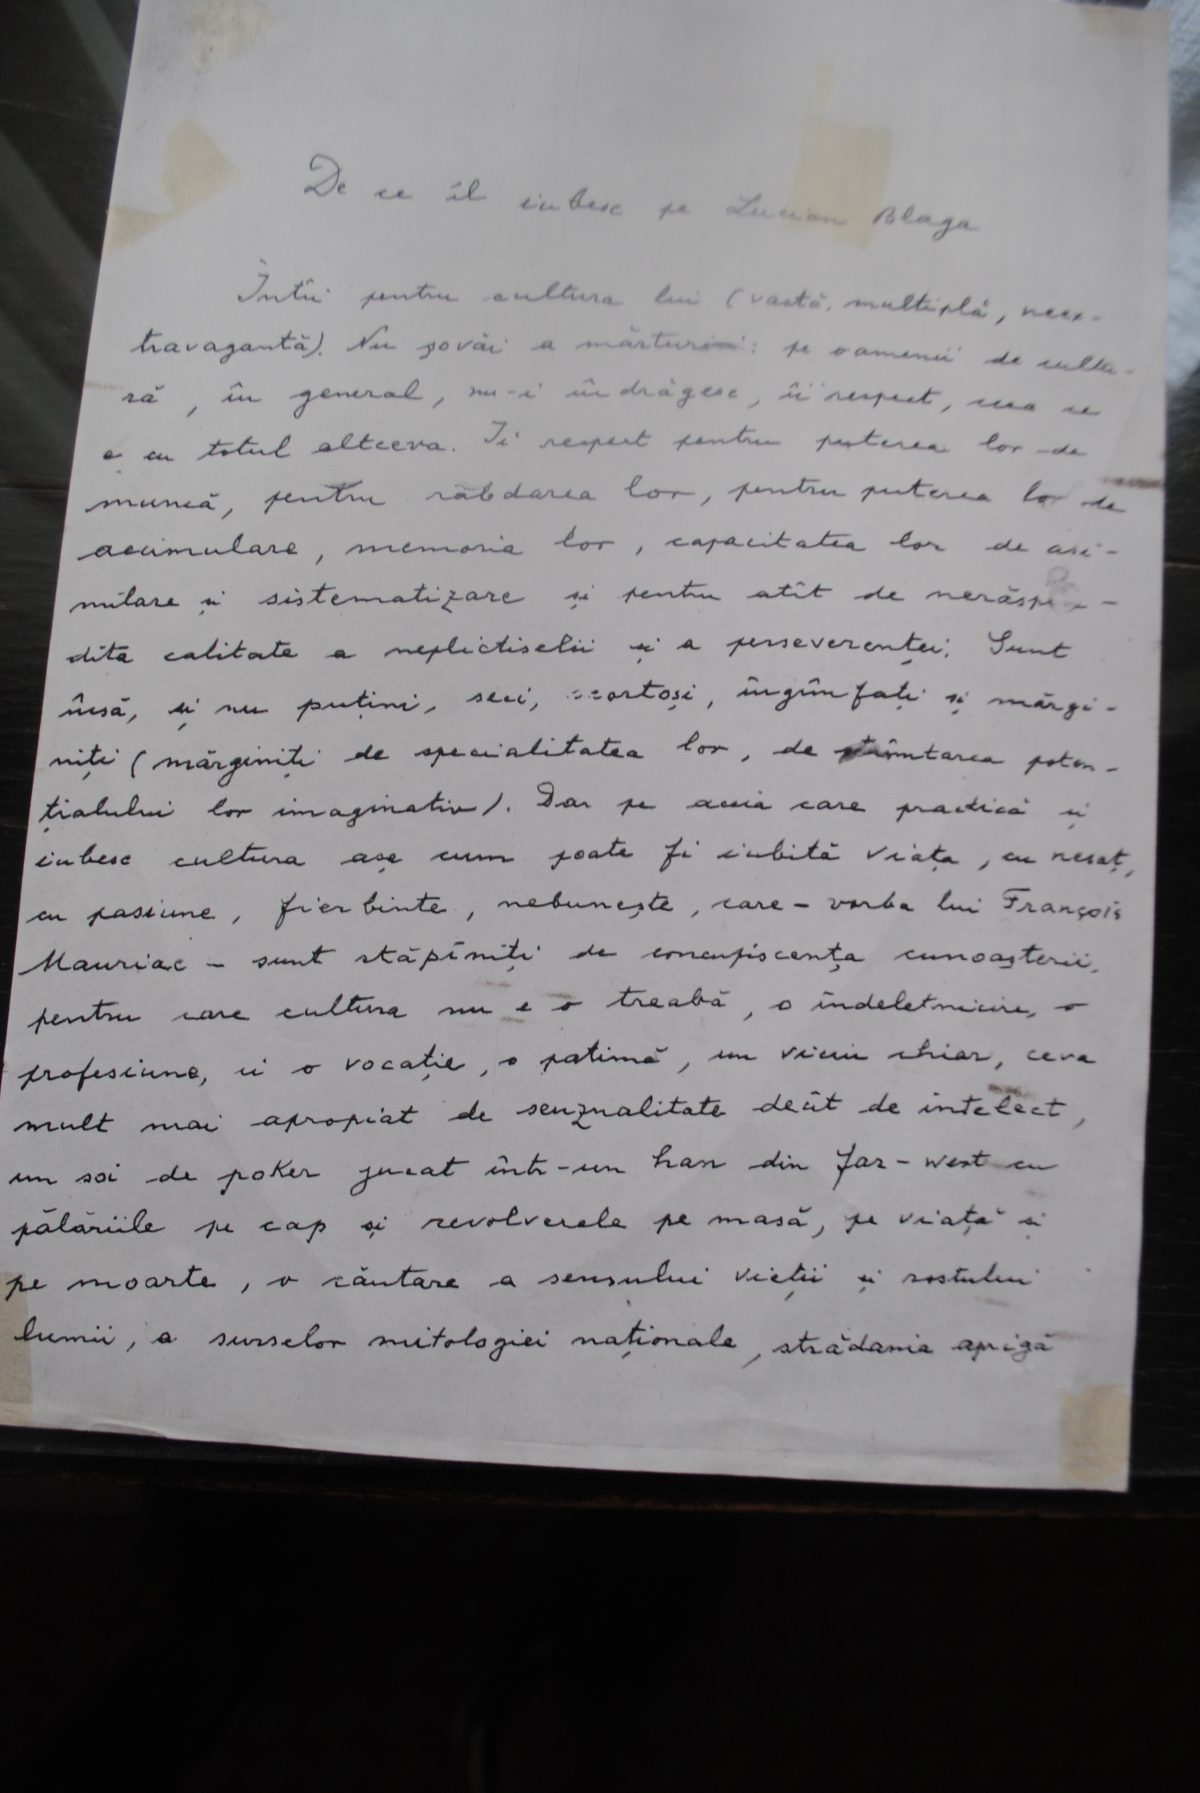 De ce îl iubesc pe Lucian Blaga
Întîi pentru cultura lui (vastă, multiplă, neex-
travagantă). Nu șovăi a mărturisi: pe oamenii de cultu-
ră, în general, nu-i îndrăgesc, îi respect, ceea ce
e cu totul altceva. Îi respect pentru puterea lor de
muncă, pentru răbdarea lor, pentru puterea lor de
acumulare, memoria lor, capacitatea lor de asi-
milare și sistematizare și pentru atît de nerăspîn-
dita calitate a neplictiselii și a perseverenței. Sunt
însă, și nu puțini, seci, scortoși, îngîmfați și mărgi-
niți (mărginiți de specialitatea lor, de strîmtarea poten-
țialului lor imaginativ). Dar pe aceia care practică și
iubesc cultura așa cum poate fi iubită viața, cu nesaț,
cu pasiune, fierbinte, nebunește, care – vorba lui François
Mauriac – sunt stăpîniți de concupiscența cunoașterii,
pentru care cultura nu e o treabă, o îndeletnicire, o
profesiune, ci o vocație, o patimă, un viciu chiar, ceva
mult mai apropiat de senzualitate decît de intelect,
un soi de poker jucat într-un han din far-west cu
pălăriile pe cap și revolverele pe masă, pe viață și
pe moarte, o căutare a sensului vieții și rostului
lumii, a surselor mitologiei naționale, strădania aprigă